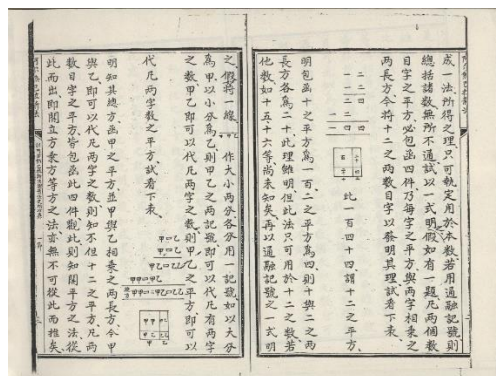 成一法所得之理只可執定用於本數若用通融記號則
總括諸數無所不通試以一式明之假如有一題凡兩個數
目字之平方必包函四件乃每字之平方與兩字相乘之
兩長方今將十二之兩數目字以發明其理試看下表
此一百四十四謂十二之平方
明包函十之平方爲一百二之平方爲四則十與二之兩
長方各爲二十此理雖明但此法只可用於十二之數若
他數如十五十六等尚未知矣再以通融記號之一式明
之假將一線
作大小兩分各分用一記號如以大分
爲甲以小分爲乙則甲乙之兩記號即可以代凡有兩字
之數甲乙即可以代凡兩字之數則甲乙之平方即可以
代凡兩字數之平方試看下表
明知其總方函甲之平方並甲與乙相乘之兩長方今甲
與乙即可以代凡兩字之數則知不但十二之平方凡兩
數目字之平方皆包函此四件觀此則知開平方之法從
此而出即開立方乘方等方之法亦無不可從此而推矣